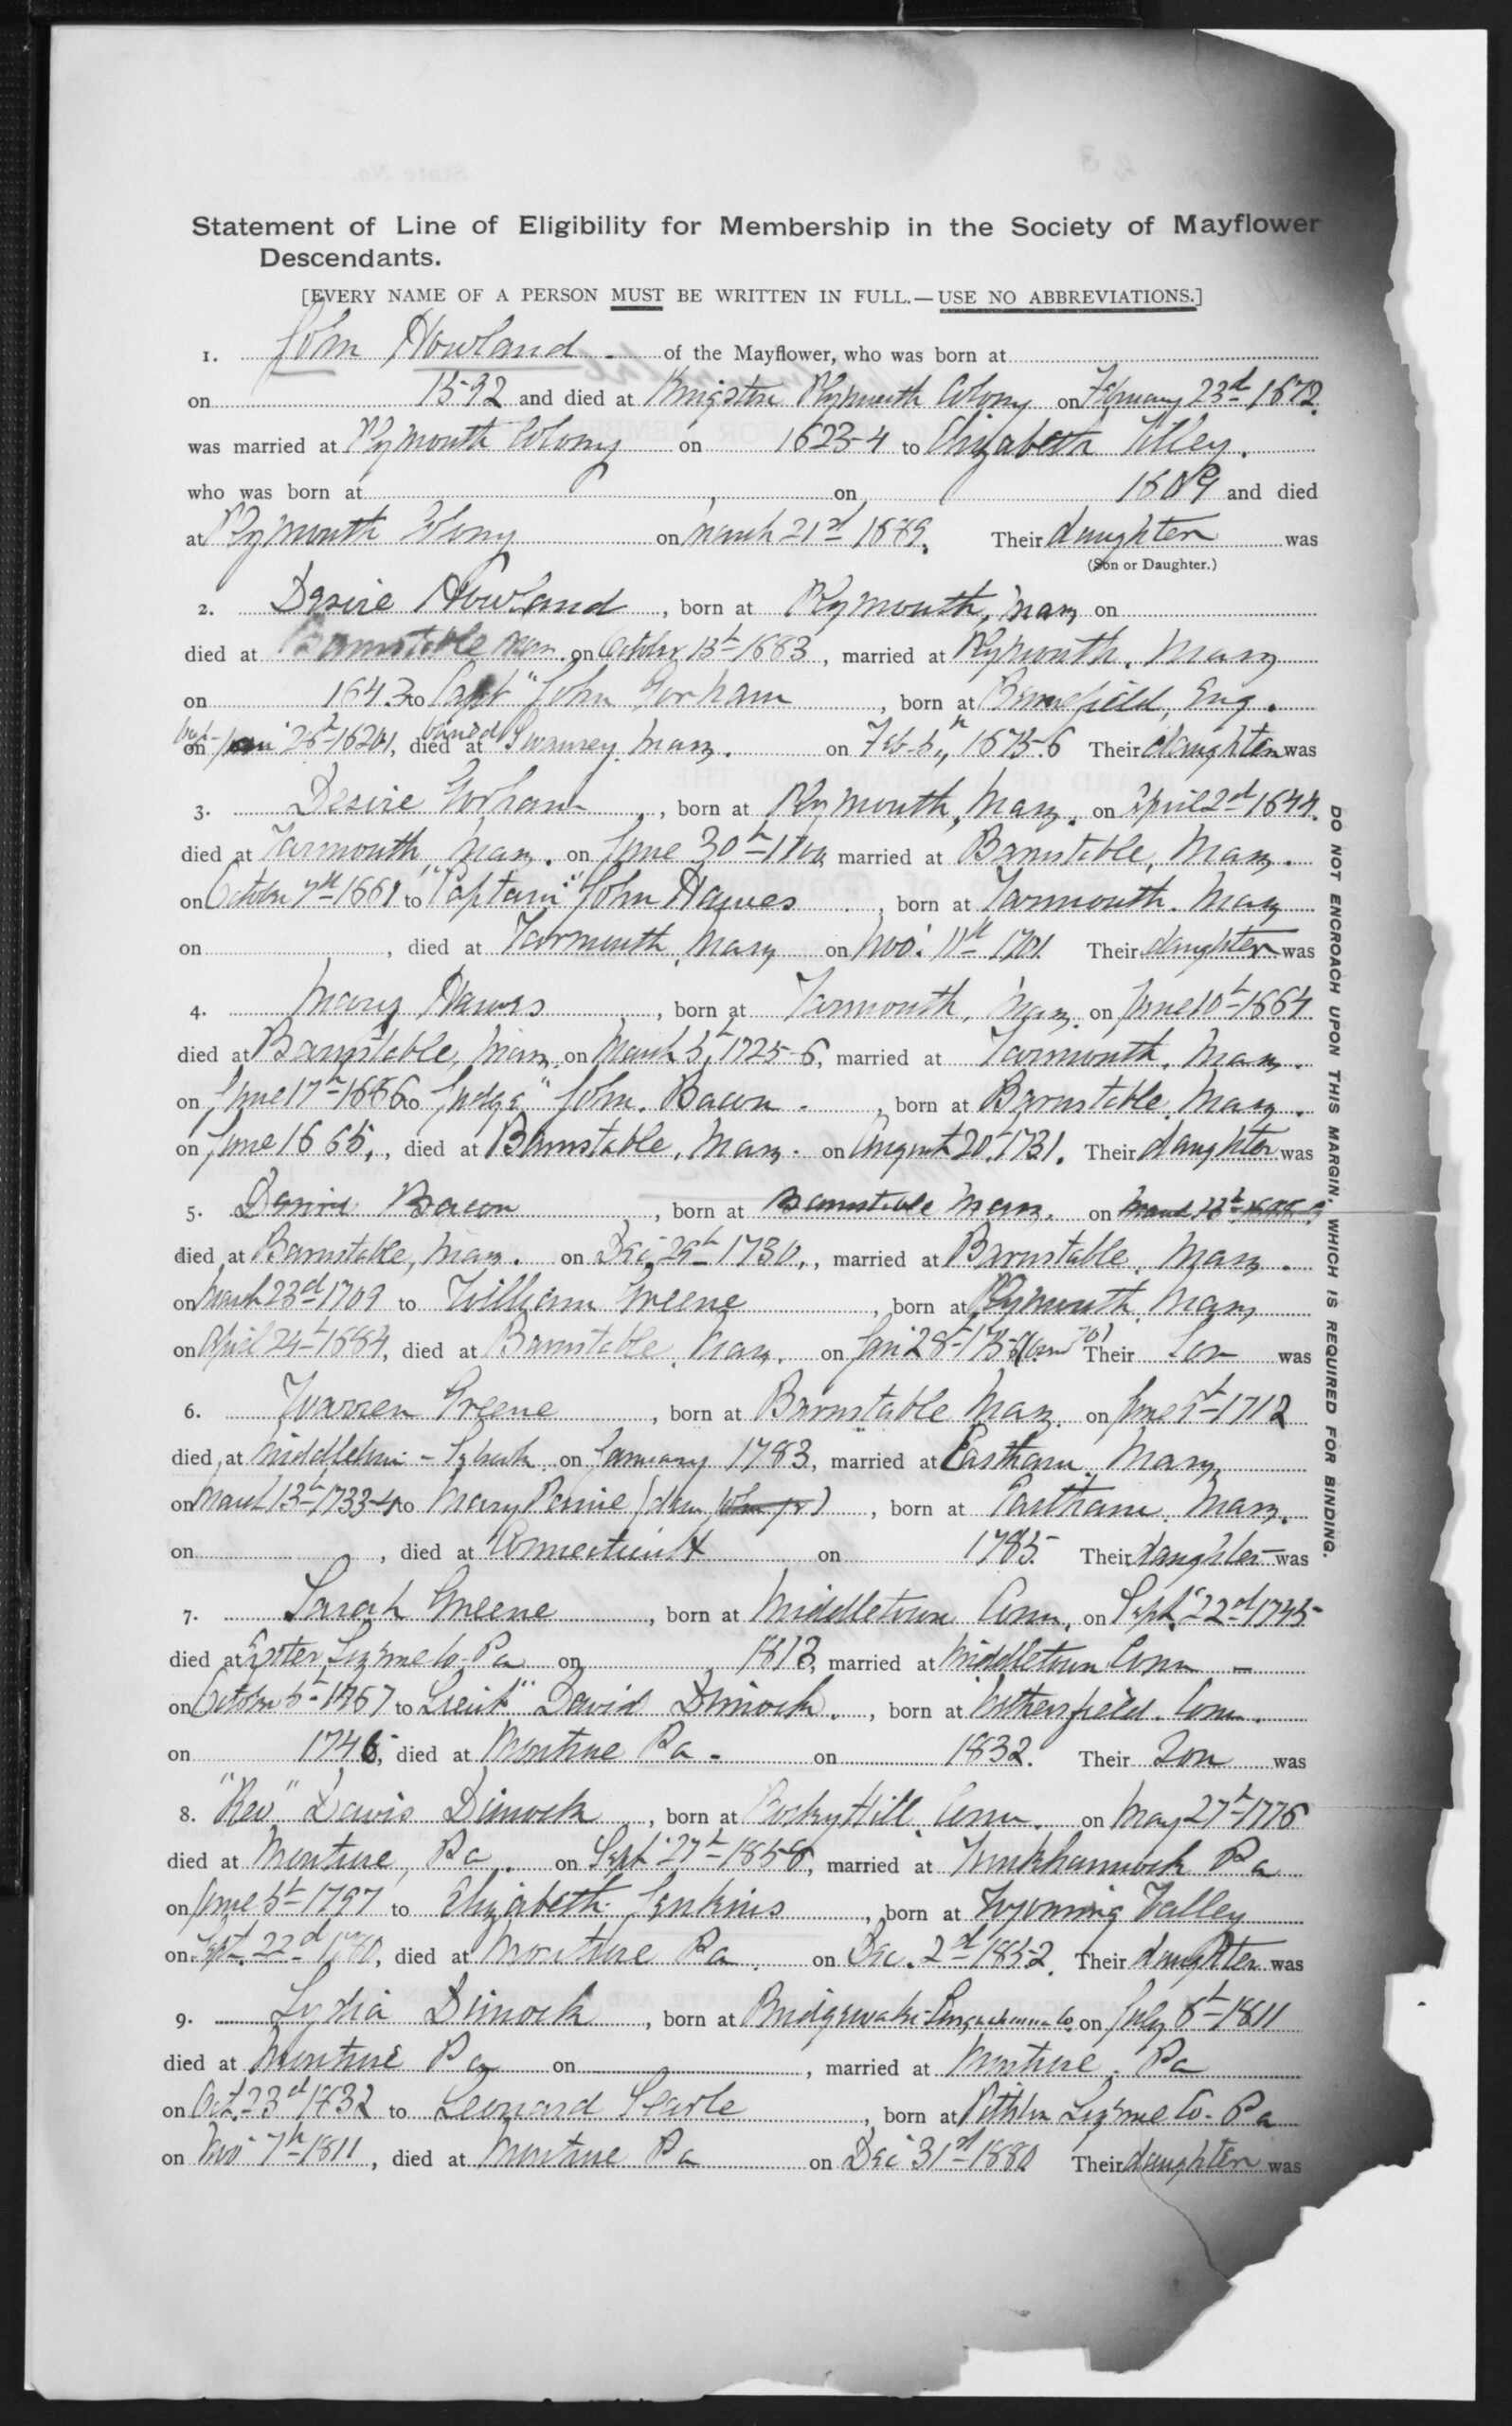 Statement of Line of Eligibility for Membership in the Society of Mayflower
Descendants.
[EVERY NAME OF A PERSON MUST BE WRITTEN IN FULL.—USE NO ABBREVIATIONS.]
1. John Howland of the Mayflower, who was born at
on 1592 and died at Kingston Plymouth Colony on February 23d 1672.
was married at Plymouth Colony on 1623-4 to Elizabeth Tilley.
who was born at on 1609 and died
at Plymouth Colony on March 21st 1689. Their daughter was
(Son or Daughter.)
2. Desire Howland, born at Plymouth, Mass on
died at Barnstable Mass. on October 13th 1683, married at Plymouth. Mass
on 1643 to "Capt" John Gorham, born at Benefield, Eng.
on 28th 1620/1, buried died at Swansey Mass. on Feb. 5th 1675-6 Their daughter was
3. Desire Gorham, born at Plymouth, Mass. on April 2nd 1644.
died at Yarmouth, Mass. on June 30th 1700 married at Barnstable, Mass.
on October 7th 1661 to "Captain" John Hawes, born at Yarmouth. Mass
on , died at Yarmouth, Mass on Nov. 11th 1701 Their daughter was
4. Mary Hawes, born at Yarmouth, Mass. on June 10th 1664
died at Barnstable, Mass. on March 5th 1725-6, married at Yarmouth, Mass.
on June 17th 1686 to "Judge" John Bacon, born at Barnstable Mass.
on June 1665, died at Barnstable, Mass. on August 20th 1731. Their daughter was
5. Desire Bacon, born at Barnstable Mass. on March 1688-9
died at Barnstable, Mass. on Dec. 29th 1730, married at Barnstable. Mass.
on March 23d 1709 to William Greene, born at Plymouth. Mass
on April 24th 1684, died at Barnstable, Mass. on Jan 28th Their Son was
6. Warren Greene, born at Barnstable Mass. on June 9th 1712
died at on January 1783, married at Eastham. Mass
on March 13th 1733-4 to Mary Paine , born at Eastham. Mass.
on , died at Connecticut on 1785. Their daughter was
7. Sarah Greene, born at Middletown Conn. on Sept. 22nd 1745
died at Exeter, Luzerne Co. Pa on 1813, married at Middletown Conn
on October 5th 1767 to "Lieut" David Dimock, born at Wethersfield. Conn.
on 1746, died at Montrose Pa. on 1832. Their Son was
8. "Rev" Davis Dimock, born at Rocky Hill Conn. on May 27th 1776
died at Montrose, Pa. on Sept 27th 1858, married at Tunkhannock Pa
on June 5th 1797 to Elizabeth Jenkins, born at Wyoming Valley
on Sept. 22d 1780, died at Montrose Pa on Dec. 2d 1852. Their daughter was
9. Lydia Dimock, born at Bridgewater Susquehanna Co. on July 8th 1811
died at Montrose Pa on , married at Montrose. Pa
on Oct. 23d 1832 to Leonard Searle, born at Pittston Luzerne Co. Pa
on Nov 7th 1811, died at Montrose Pa on Dec 31st 1880 Their daughter was
DO NOT ENCROACH UPON THIS MARGIN, WHICH IS REQUIRED FOR BINDING.